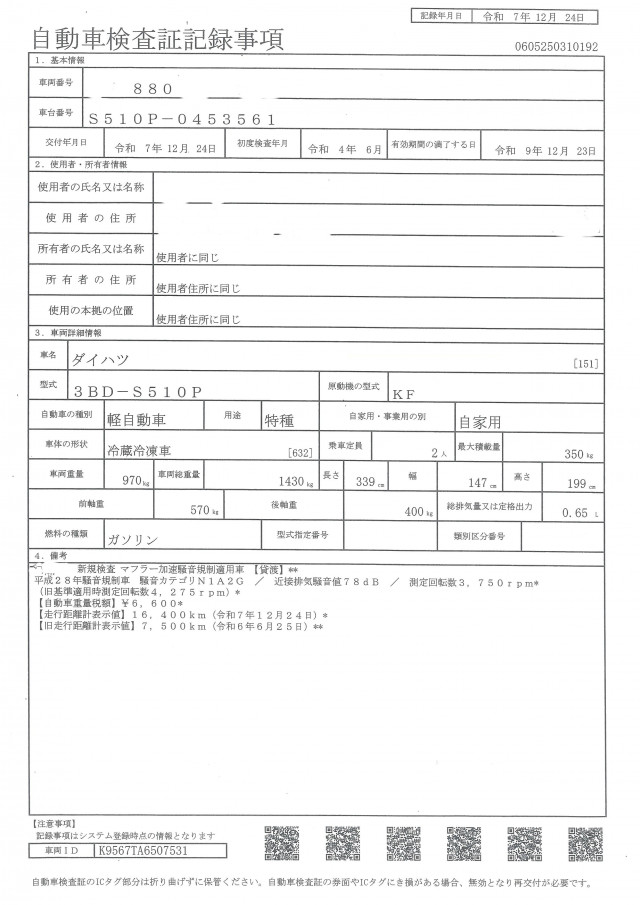 記録年月日 令和 7年 12月 24日
自動車検査証記録事項
0605250310192
1．基本情報
車両番号 880
車台番号 S510P-0453561
交付年月日 令和 7年 12月 24日 初度検査年月 令和 4年 6月 有効期間の満了する日 令和 9年 12月 23日
2．使用者・所有者情報
使用者の氏名又は名称
使用者の住所
所有者の氏名又は名称 使用者に同じ
所有者の住所 使用者住所に同じ
使用の本拠の位置 使用者住所に同じ
3．車両詳細情報
車名 ダイハツ [151]
型式 3BD-S510P 原動機の型式 KF
自動車の種別 軽自動車 用途 特種 自家用・事業用の別 自家用
車体の形状 冷蔵冷凍車 [632] 乗車定員 2人 最大積載量 350kg
車両重量 970kg 車両総重量 1430kg 長さ 339cm 幅 147cm 高さ 199cm
前軸重 570kg 後軸重 400kg 総排気量又は定格出力 0.65 L
燃料の種類 ガソリン 型式指定番号 類別区分番号
4．備考
新規検査 マフラー加速騒音規制適用車 【貸渡】**
平成28年騒音規制車 騒音カテゴリN1A2G ／ 近接排気騒音値78dB ／ 測定回転数3，750rpm*
（旧基準適用時測定回転数4，275rpm）*
【自動車重量税額】¥6，600*
【走行距離計表示値】16，400km（令和7年12月24日）*
【旧走行距離計表示値】7，500km（令和6年6月25日）**
【注意事項】
記録事項はシステム登録時点の情報となります
車両ID K9567TA6507531
自動車検査証のICタグ部分は折り曲げずに保管ください。自動車検査証の券面やICタグにき損がある場合、無効となり再交付が必要です。